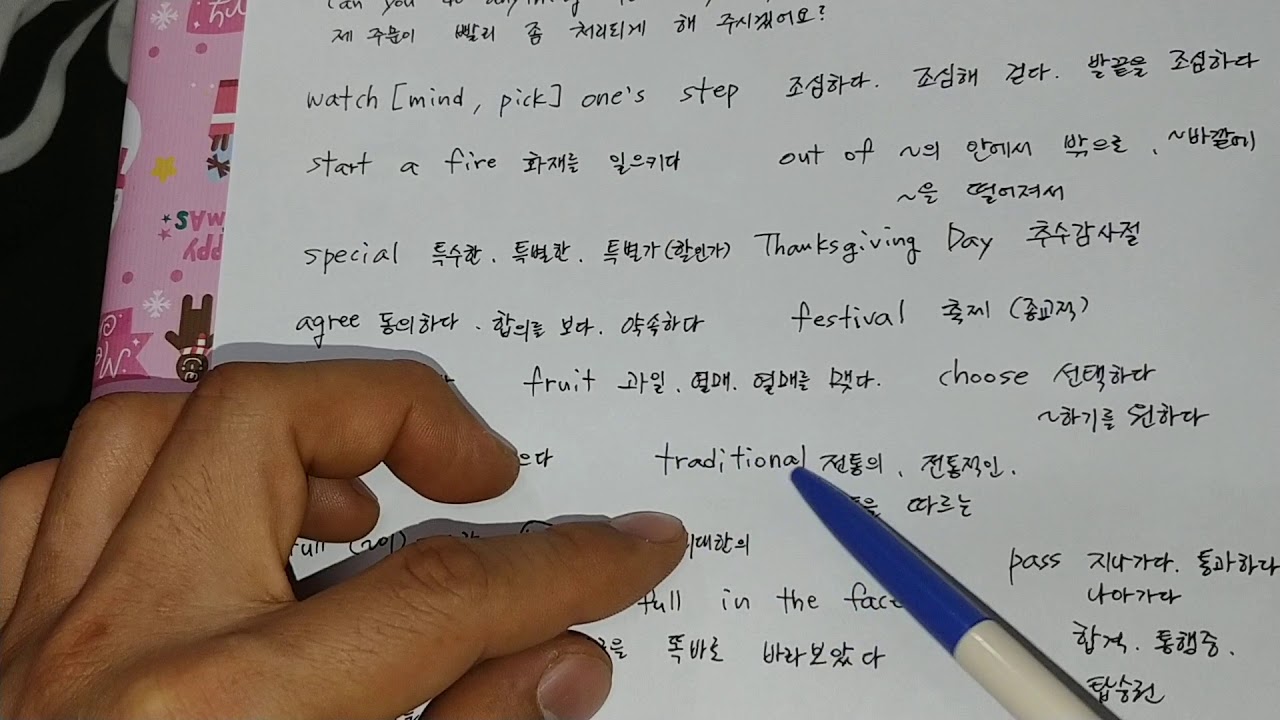 can you do anything
제 주문이 빨리 좀 처리되게 해 주시겠어요?
watch [mind, pick] one's step 조심하다. 조심해 걷다. 발끝을 조심하다
start a fire 화재를 일으키다 out of ~의 안에서 밖으로, ~바깥에
~을 떨어져서
special 특수한. 특별한. 특별가(할인가) Thanksgiving Day 추수감사절
agree 동의하다. 합의를 보다. 약속하다 festival 축제 (종교적)
fruit 과일. 열매. 열매를 맺다. choose 선택하다
~하기를 원하다
traditional 전통의, 전통적인.
따르는
full
pass 지나가다. 통과하다
full in the face 나아가다
똑바로 바라보았다 합격. 통행증.
탑승권